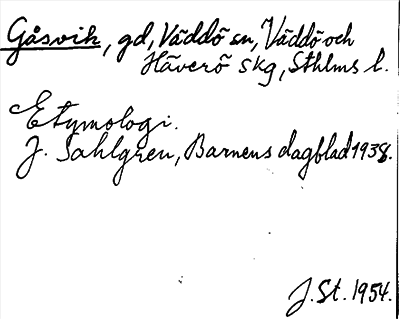 Gåsvik, gd, Väddö sn, Väddö och
Häverö skg, Sthlms l.
Etymologi.
J. Sahlgren, Barnens dagblad 1938.
J. St. 1954.